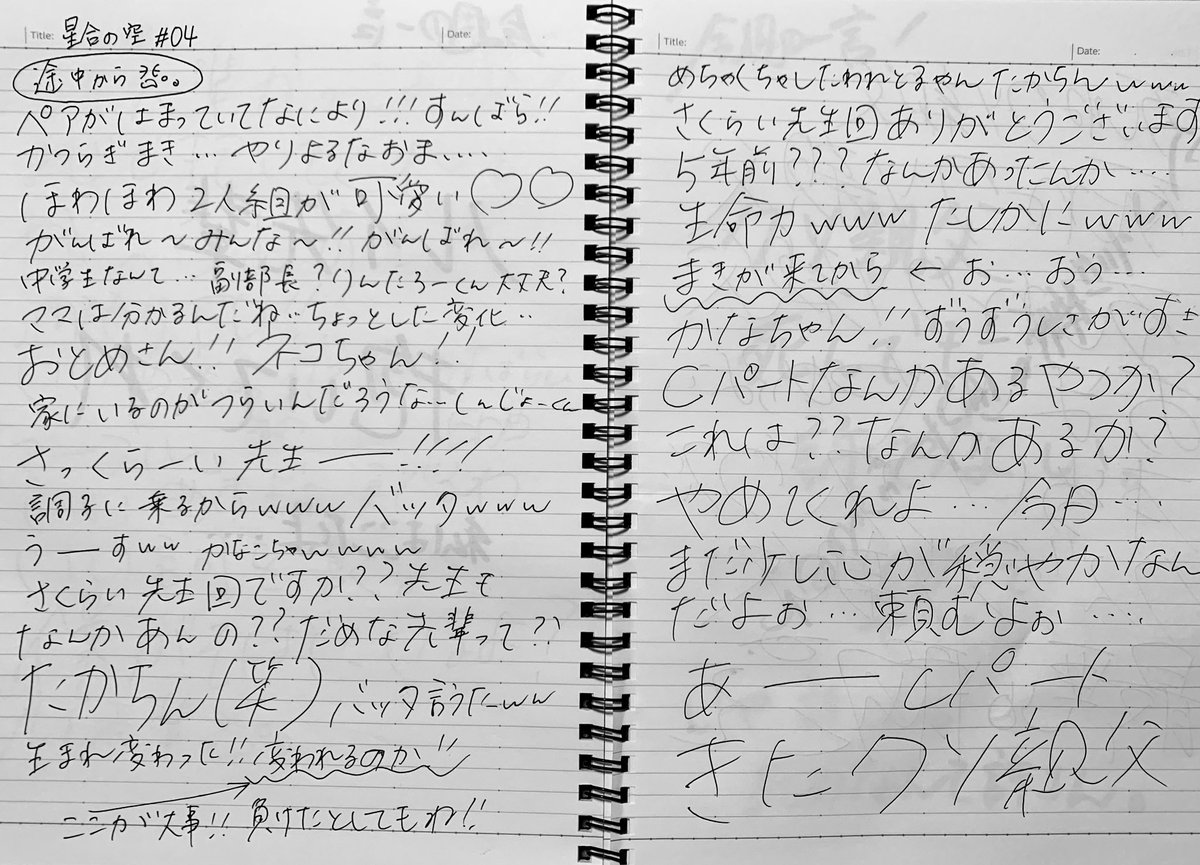 Title: 星合の空 #04
Date:
途中から
ペアがはまっていてなにより!!! すんばら!!
かつらぎまき… やりよるなおま....
ほわほわ2人組が可愛い♡♡
がんばれ〜みんな〜!! がんばれ〜!!
中学生なんて… 副部長?りんたろーくん大丈夫?
ママは分かるんだね…ちょっとした変化…
おとめさん!! ネコちゃん!!
家にいるのがつらいんだろうな…しんじょーくん
さっくらーい先生――!!!!
調子に乗るからwww バッタwww
うーすww かなこちゃwwww
さくらい先生回ですか!?? 先生も
なんかあんの?? だめな先輩って??
たかちん(笑) バッタ言うたww
生まれ変わった!! 変われるのか!!
ここが大事!! 負けたとしてもね!!
Title:
Date:
めちゃくちゃしたわれとるやん たかちんwww
さくらい先生回ありがとうございます
5年前??? なんかあったんか....
生命力www たしかにwww
まきが来てから ← お… おう…
かなちゃん!! ずうずうしさがすき
Cパートなんかあるやつか?
これは?? なんかあるか?
やめてくれよ… 今日…
まだ少し心が穏やかなん
だよぉ… 頼むよぉ....
あ――Cパート
きたこクソ親父